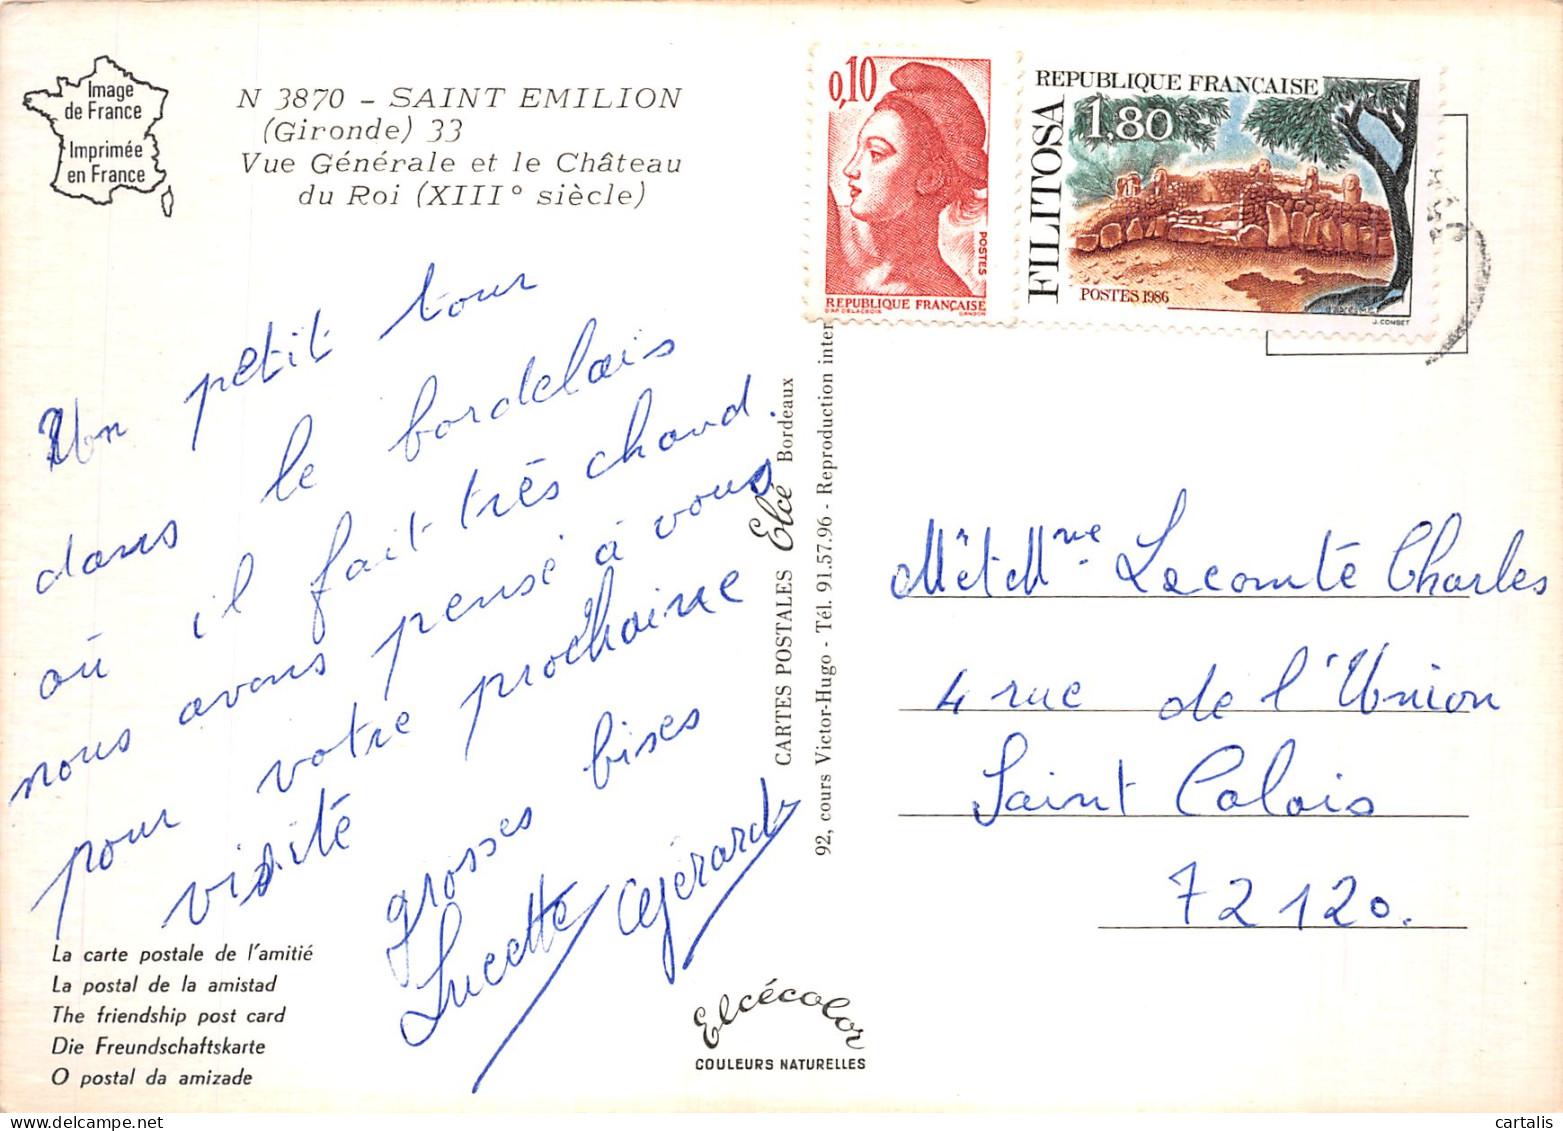 Image
de France
Imprimée
en France
N 3870 - SAINT EMILION
(Gironde) 33
Vue Générale et le Château
du Roi (XIII° siècle)
Un petit tour
dans le bordelais
où il fait très chaud.
nous avons pensé à vous
pour votre prochaine
visite
grosses bises
Lucette Gérard
La carte postale de l'amitié
La postal de la amistad
The friendship post card
Die Freundschaftskarte
O postal da amizade
CARTES POSTALES Elcé Bordeaux
92, cours Victor-Hugo - Tél. 91.57.96 - Reproduction inter
Elcécolor
COULEURS NATURELLES
0,10
POSTES
REPUBLIQUE FRANÇAISE
D'AP. DELACROIX GANDON
REPUBLIQUE FRANÇAISE
1,80
FILITOSA
POSTES 1986
J. COMBET
Mr et Mme Lecomte Charles
4 rue de l'Union
Saint Calais
72120.
cartalis